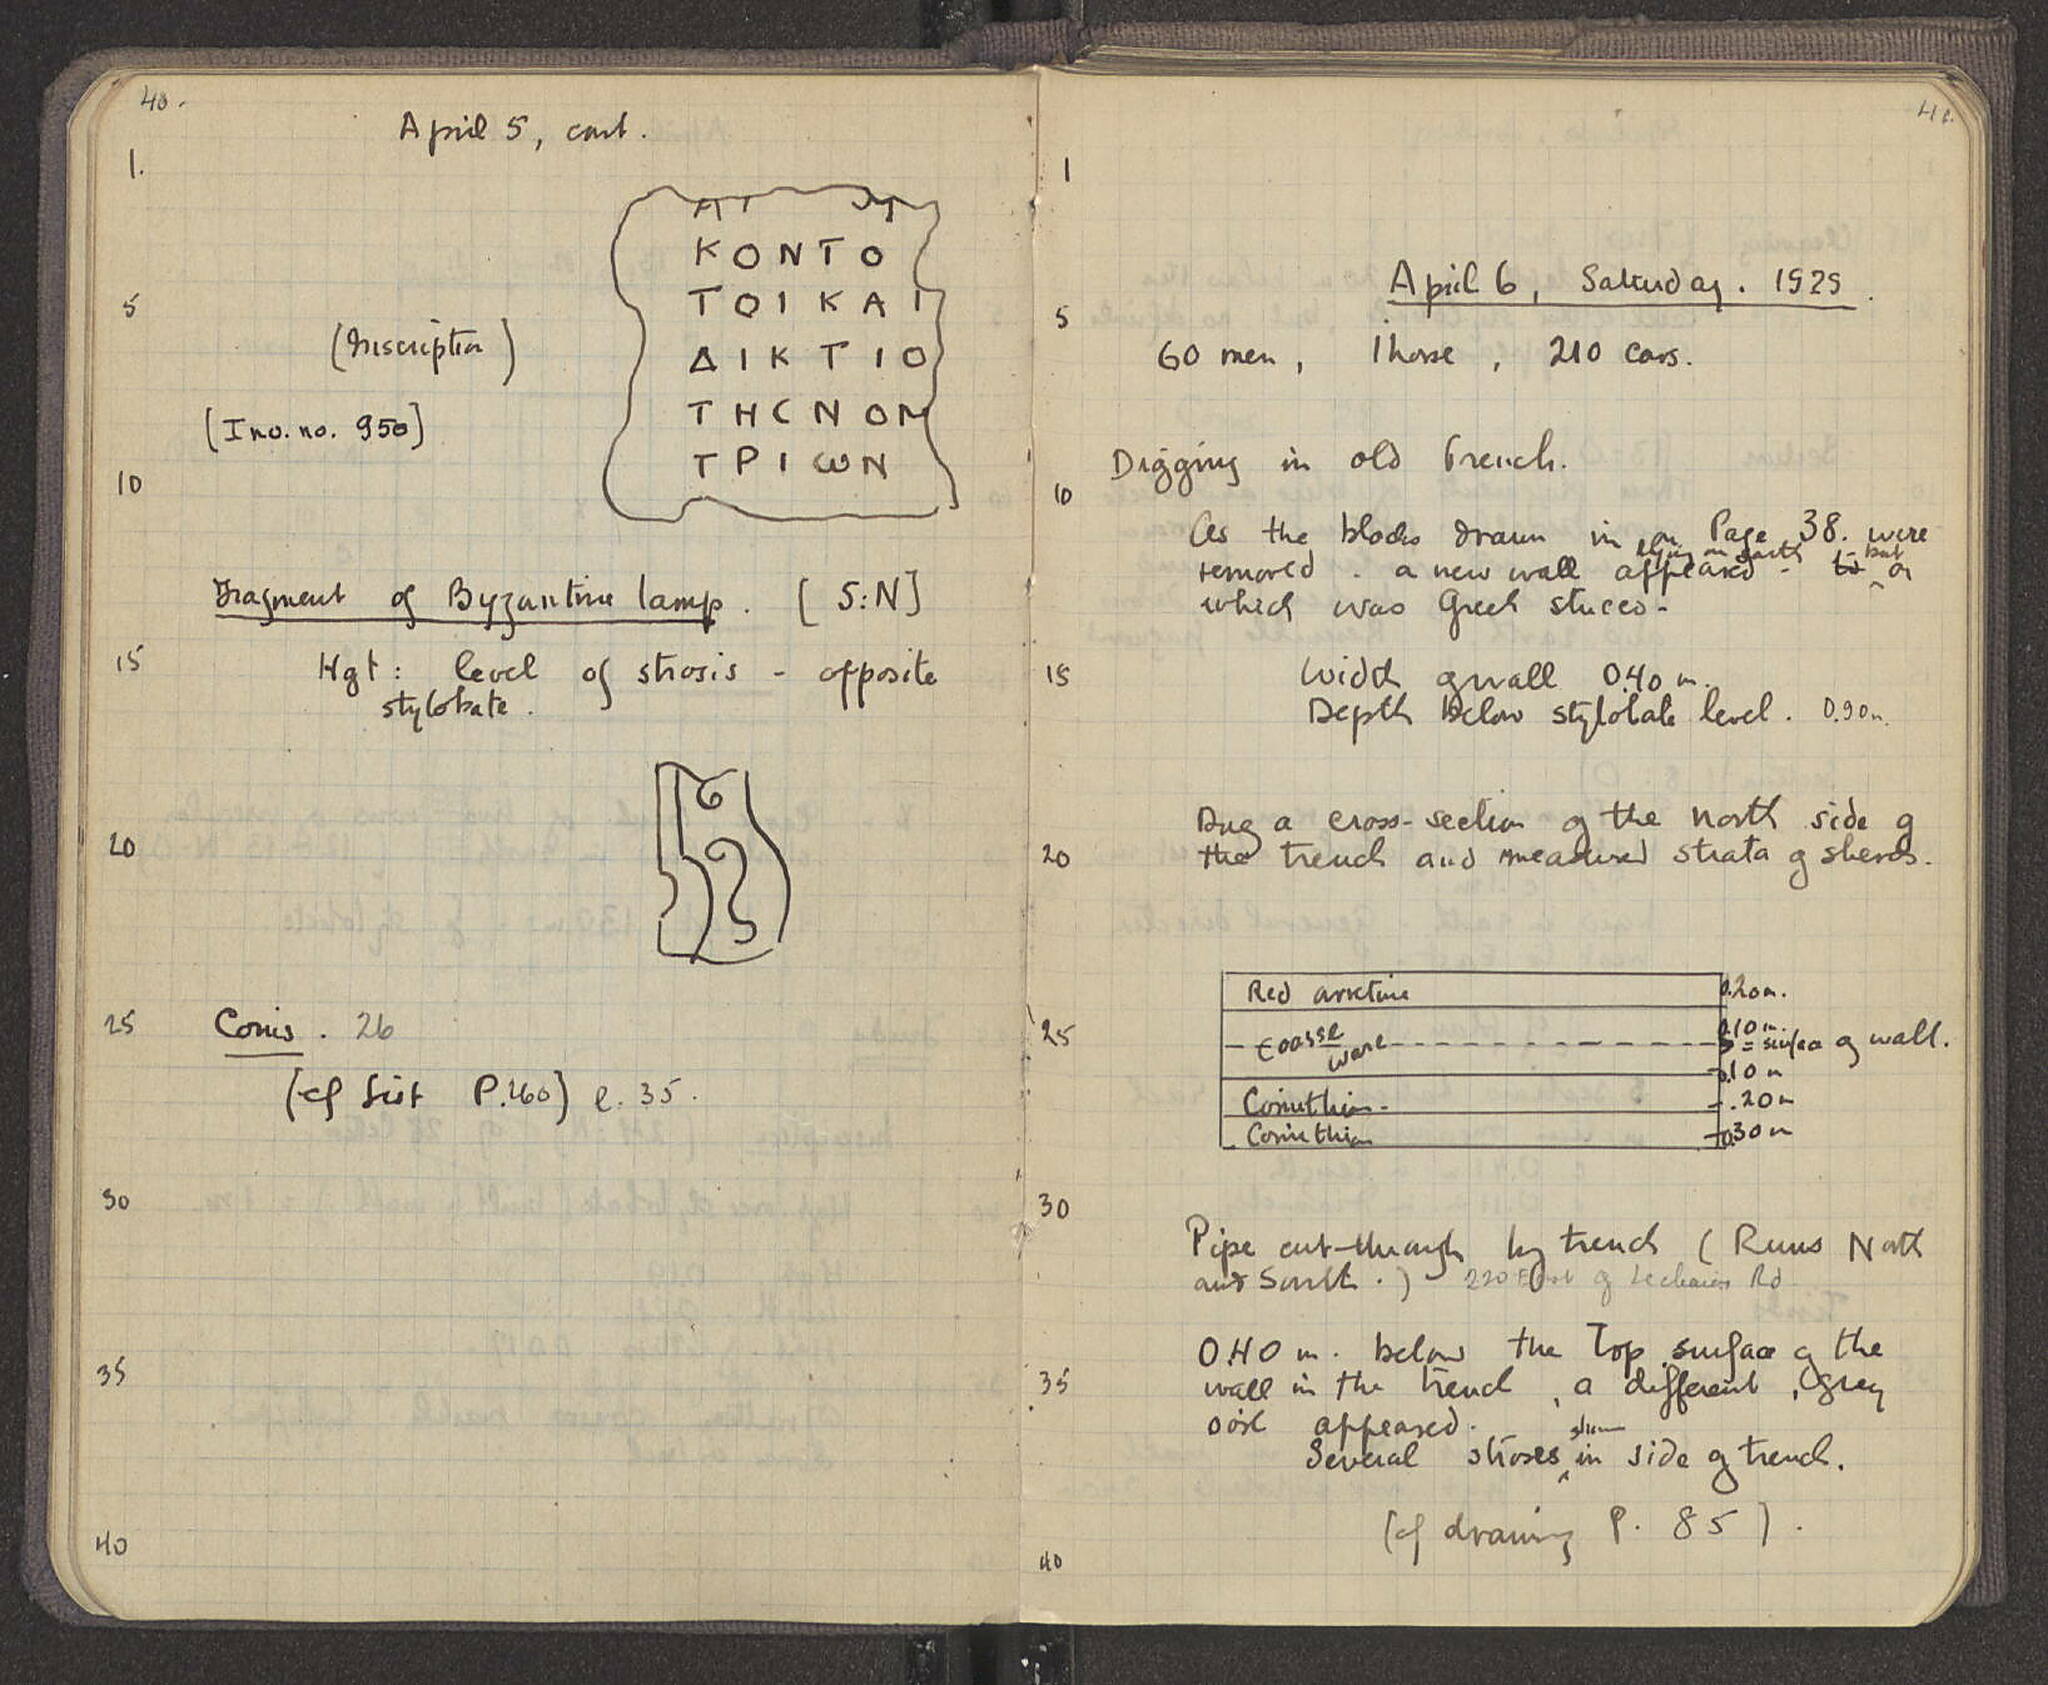 40.
April 5, cont.
1.
ΚΟΝΤΟ
5
ΤΟΙΚΑΙ
(Inscription)
ΔΙΚΤΙΟ
[Inv. no. 950]
ΤΗCΝΟΜ
ΤΡΙωΝ
10
Fragment of Byzantine lamp. [S:N]
15
Hgt: level of strosis - opposite
stylobate.
20
25
Coins. 26
(cf list P.160) l. 35.
30
35
40
41.
1
April 6, Saturday. 1929.
5
60 men, 1 horse, 210 cars.
Digging in old trench.
10
As the blocks drawn in on Page 38. were
lying on earth but
removed. a new wall appeared - on
which was Greek stucco-
15
Width of wall 0.40 m.
Depth below stylobate level. 0.90 m.
Dug a cross-section of the north side of
20
the trench and measured strata of sherds.
Red arretine 0.20 m.
25
Coarse ware
0.10 m.
= surface of wall.
.10 m
Corinthian - .20 m
Corinthian .30 m
30
Pipe cut-through by trench (Runs North
and South.) 220 East of Lechaion Rd
0.40 m. below the Top surface of the
35
wall in the trench, a different, grey
soil appeared.
Several stroses in side of trench.
(cf drawing P. 85).
40